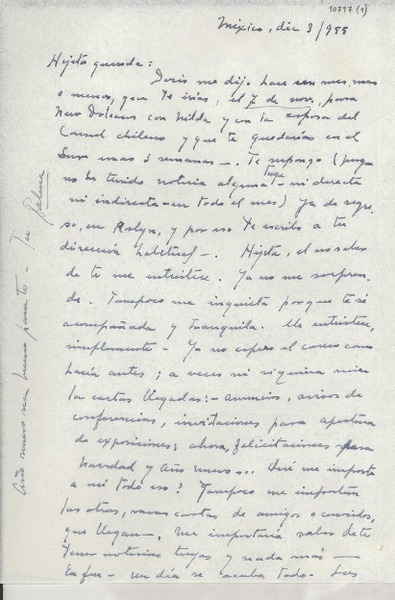 10797 (1)
México, dic 3/955
Hijita querida:
Doris me dijo hace un mes, mas
o menos, que te irías, el 7 de nov., para
New Orleans con Hilda y con la esposa del
Consul chileno y que te quedarías en el
Sur unas 3 semanas—. Te supongo (porque
no he tenido noticia alguna tuya — ni directa
ni indirecta — en todo el mes) ya de regre-
so, en Roslyn, y por eso te escribo a tu
dirección habitual—. Hijita, el no saber
de ti me entristece. Ya no me sorpren-
de. Tampoco me inquieta porque te sé
acompañada y tranquila. Me entristece,
simplemente — Ya no espero el correo como
hacía antes; a veces ni siquiera miro
la cartas llegadas: — anuncios, avisos de
conferencias, invitaciones para apertura
de exposiciones; ahora, felicitaciones para
Navidad y Año nuevo... Qué me importa
a mí todo eso? Tampoco me importan
las otras, raras cartas de amigos o conocidos,
que llegan—. Me importaría saber de ti
tener noticias tuyas y nada más —
En fin — un día se acaba todo — Las
Año nuevo sea bueno para ti — Tu Palma